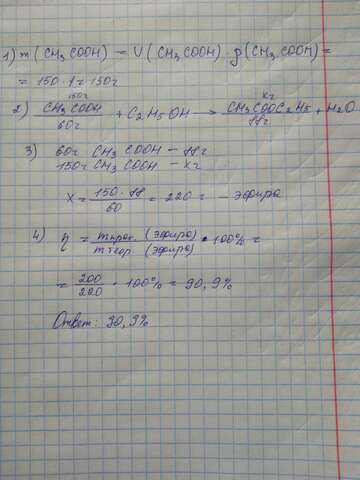 1) m (CH3COOH) = V (CH3COOH) · ρ (CH3COOH) =
= 150 · 1 = 150г
150г xг
2) CH3COOH + C2H5OH → CH3COOC2H5 + H2O
60г 88г
3) 60г CH3COOH – 88г
150г CH3COOH – xг
x = 150 · 88 / 60 = 220 г – эфира
4) η = mпрак. (эфира) / mтеор. (эфира) · 100% =
= 200 / 220 · 100% = 90,9%
Ответ: 90,9%